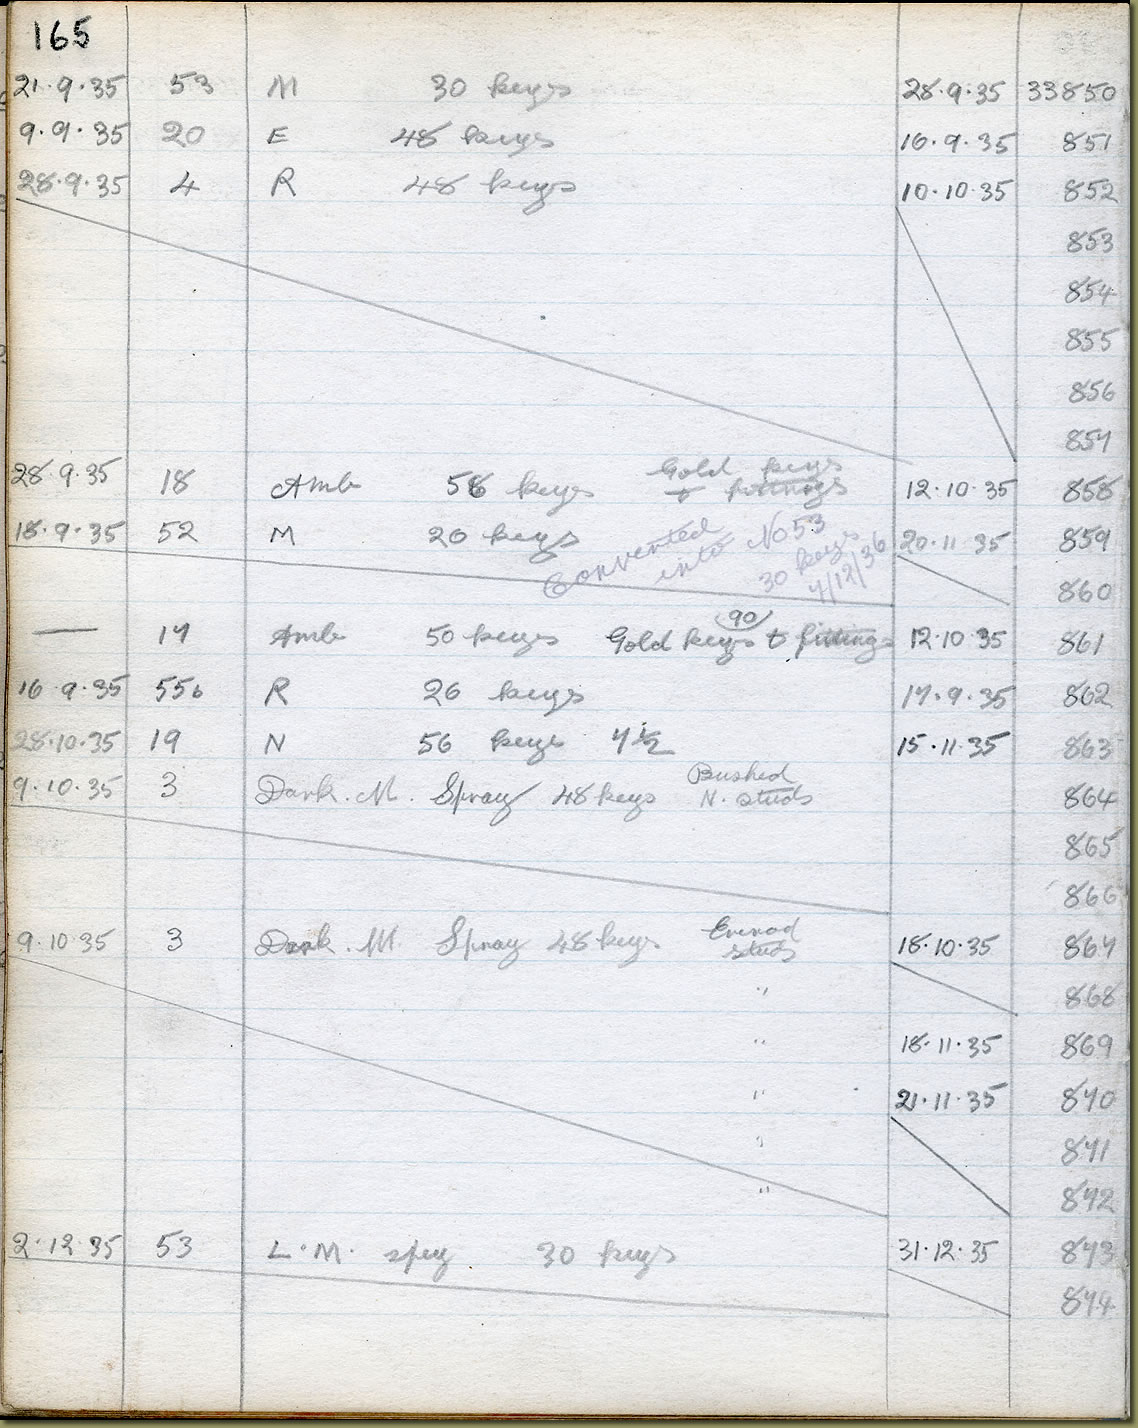 165
21·9·35 53 M 30 keys 28·9·35 33850
9·9·35 20 E 48 keys 16·9·35 851
28·9·35 4 R 48 keys 10·10·35 852
853
854
855
856
857
Gold keys
28·9·35 18 Amb 58 keys & fittings 12·10·35 858
18·9·35 52 M 26 keys 20·11·35 859
Converted into No 53
30 keys
7/12/36
860
90
— 17 Amb 50 keys Gold keys & fittings 12·10·35 861
16·9·35 55b R 26 keys 17·9·35 862
28·10·35 19 N 56 keys 7½ 15·11·35 863
Bushed
9·10·35 3 Dark. M. Spray 48 keys N. studs 864
865
866
9·10·35 3 Dark. M. Spray 48 keys studs 18·10·35 867
" 868
" 18·11·35 869
" 21·11·35 870
" 871
" 872
2·12·35 53 L·M· 30 keys 31·12·35 873
874